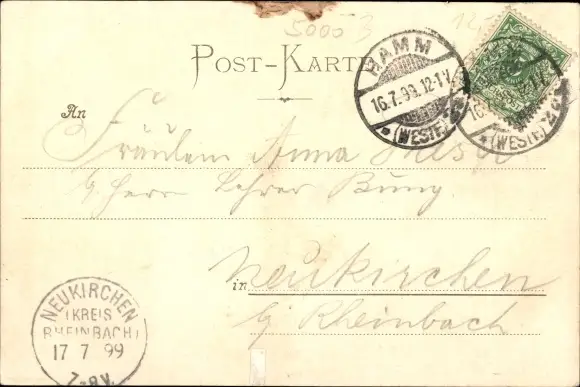 5000 3
POST-KARTE
HAMM
16.7.99.12-1N.
(WESTF)
An
Fräulein Anna
Herrn Lehrer Bung
in Neukirchen
b/ Rheinbach
NEUKIRCHEN
(KREIS
RHEINBACH)
17 7 99
7-8V.